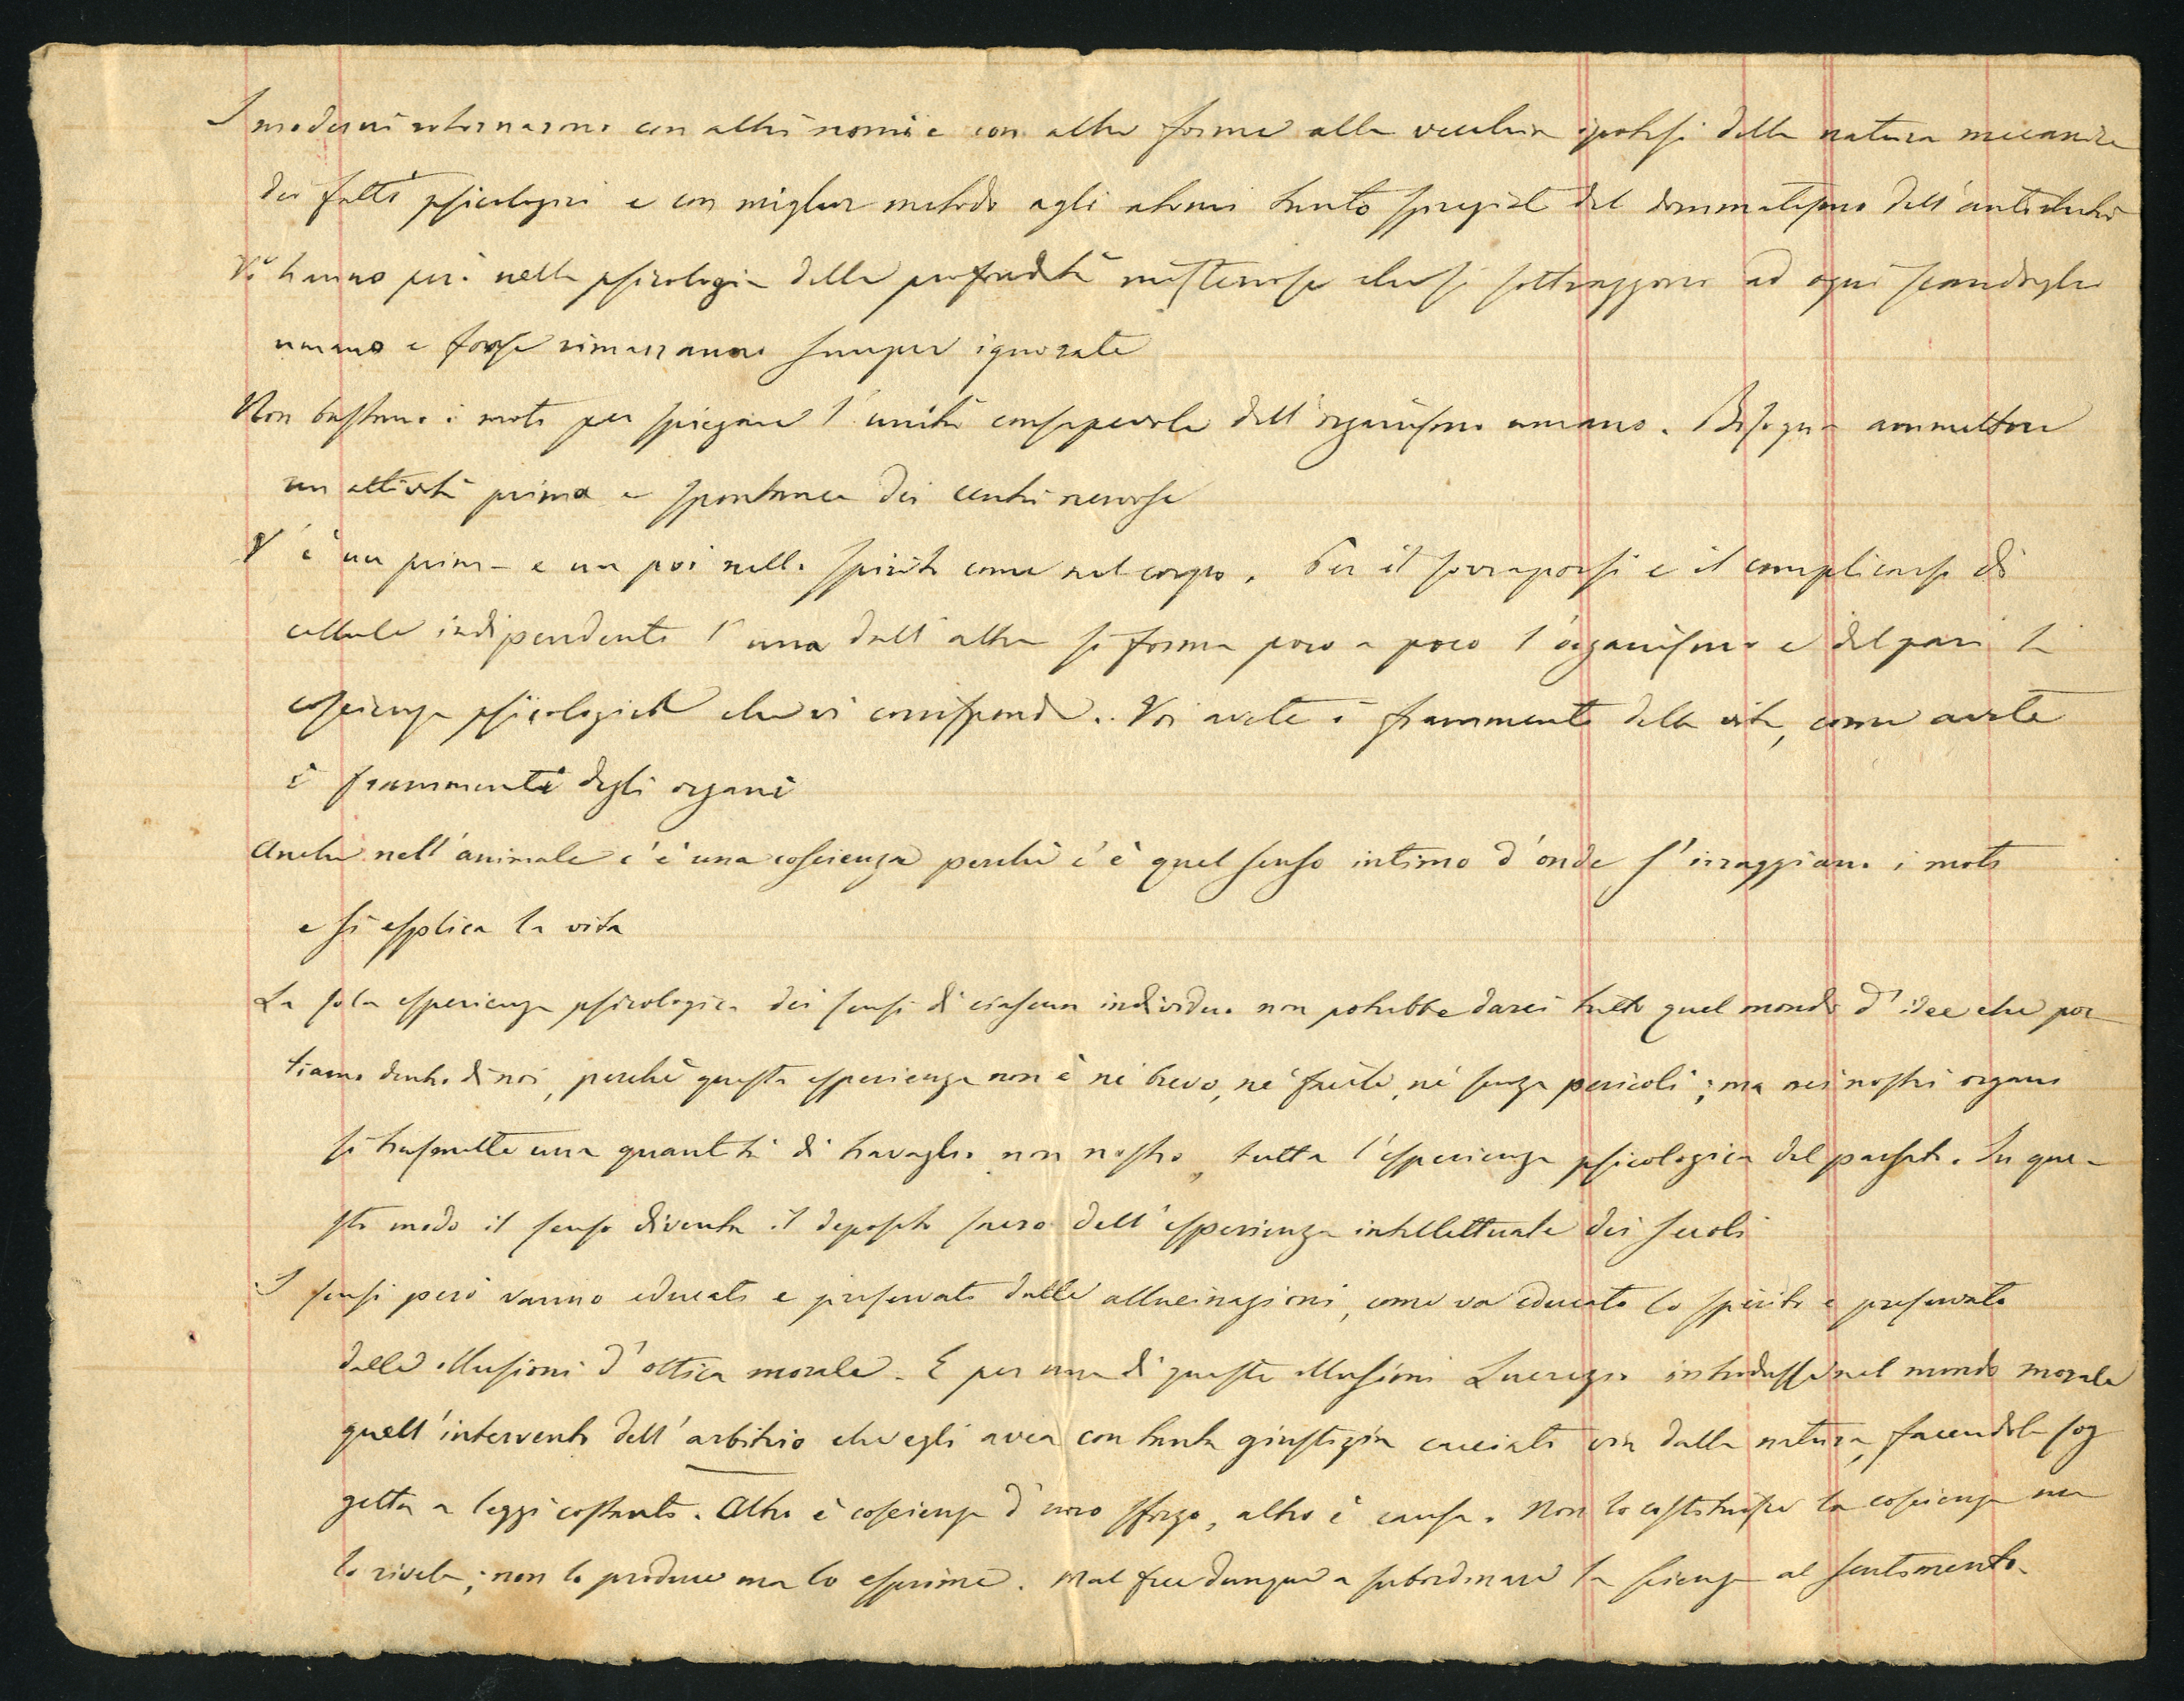 I moderni ritornarono con altri nomi e con altre forme alla vecchia ipotesi della natura meccanica
dei fatti psicologici e con miglior metodo agli atomi tanto spregiati dal dommatismo dell'antichità
Vi hanno però nella psicologia delle profondità misteriose che si sottraggono ad ogni scandaglio
umano e forse rimarranno sempre ignorate
Non bastano i moti per spiegare l'unità consapevole dell'organismo umano. Bisogna ammettere
un attività prima e spontanea dei centri nervosi
V'è un prima e un poi nello spirito come nel corpo. Per il sovrapporsi e il complicarsi di
cellule indipendenti l'una dall'altra si forma poco a poco l'organismo e del pari la
coscienza psicologica che vi corrisponde. Voi avete i frammenti della vita, come avete
i frammenti degli organi
Anche nell'animale c'è una coscienza perchè c'è quel senso intimo d'onde s'irraggiano i moti
e si esplica la vita
La sola esperienza psicologica dei sensi di ciascun individuo non potrebbe darci tutto quel mondo d'idee che por-
tiamo dentro di noi, perchè questa esperienza non è nè breve, nè facile, nè senza pericoli; ma nei nostri organi
si trasmette una quantità di travaglio non nostro, tutta l'esperienza psicologica del passato. In que-
sto modo il senso diventa il deposito sacro dell'esperienza intellettuale dei secoli
I sensi però vanno educati e preservati dalle allucinazioni, come va educato lo spirito e preservato
dalle illusioni d'ottica morale. E per una di queste illusioni Lucrezio introdusse nel mondo morale
quell'intervento dell'arbitrio che egli avea con tanta giustizia cacciato via dalla natura, facendola sog
getta a leggi costanti. Altro è coscienza d'uno sforzo, altro è causa. Non lo costituisce la coscienza ma
lo rivela; non lo produce ma lo esprime. Mal fece dunque a subordinare la scienza al sentimento.